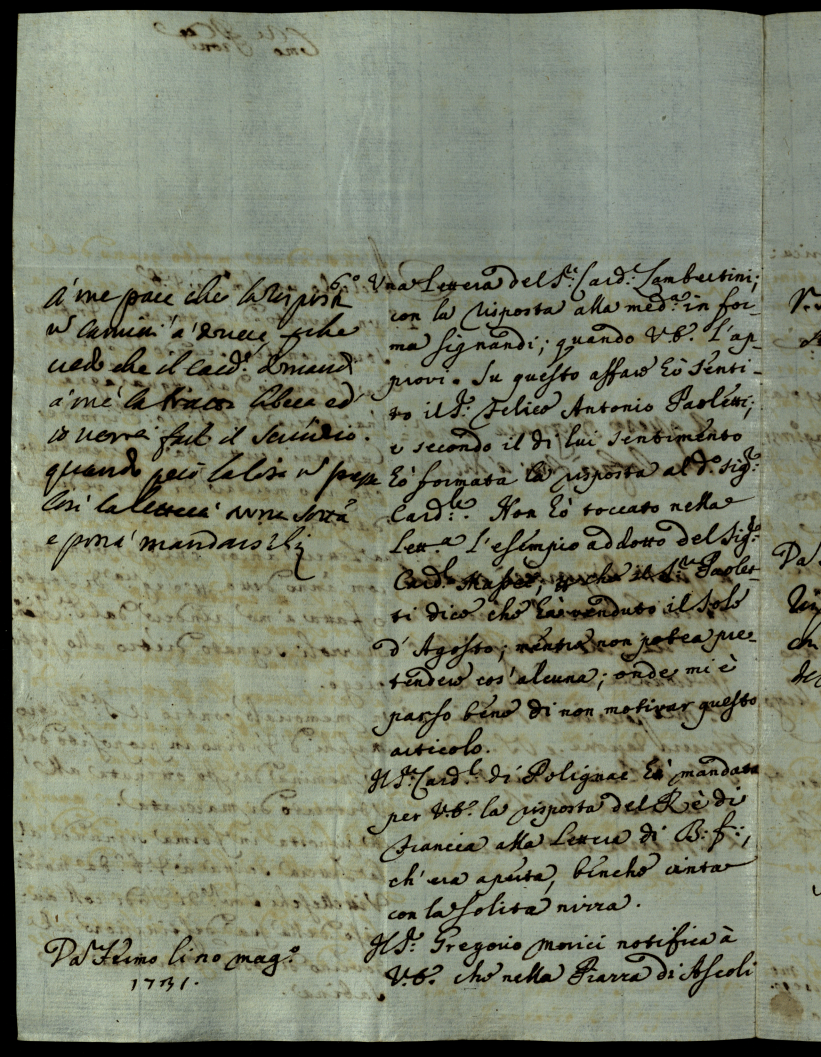 Una Lettera del S.r Card.l Lambertini;
con la risposta alla med.a in for-
ma signandi; quando V.E. l'ap-
provi. Su questo affare hò senti-
to il S.r Felice Antonio Paoletti;
e secondo il di lui sentimento
hò formata la risposta al d.o Sig.r
Card.le. Non hò toccato nella
Lett.a l'esempio addotto del Sig.r
Card.l perche il S.r Paolet-
ti dice che hà venduto il Sole
d'Agosto; mentre non potea pre-
tendere cos'alcuna; onde mi è
parso bene di non motivar questo
articolo.
Il S.r Card.l di Polignac hà mandata
per V.E. la risposta del Rè di
Francia alla Lettera di B: f:,
ch'era aperta, benche cinta
con la solita nizza.
Il S.r Gregorio Morici notifica à
V.E. che nella Piazza di Ascoli
6.o
à me pare che la risposta
che
vedo che il Card.l domandi
à mè la libera ed
io vorrei far il
quando però la cosa
così la lettera
e potrà mandarsili
Da Fermo li no mag.o
1731.